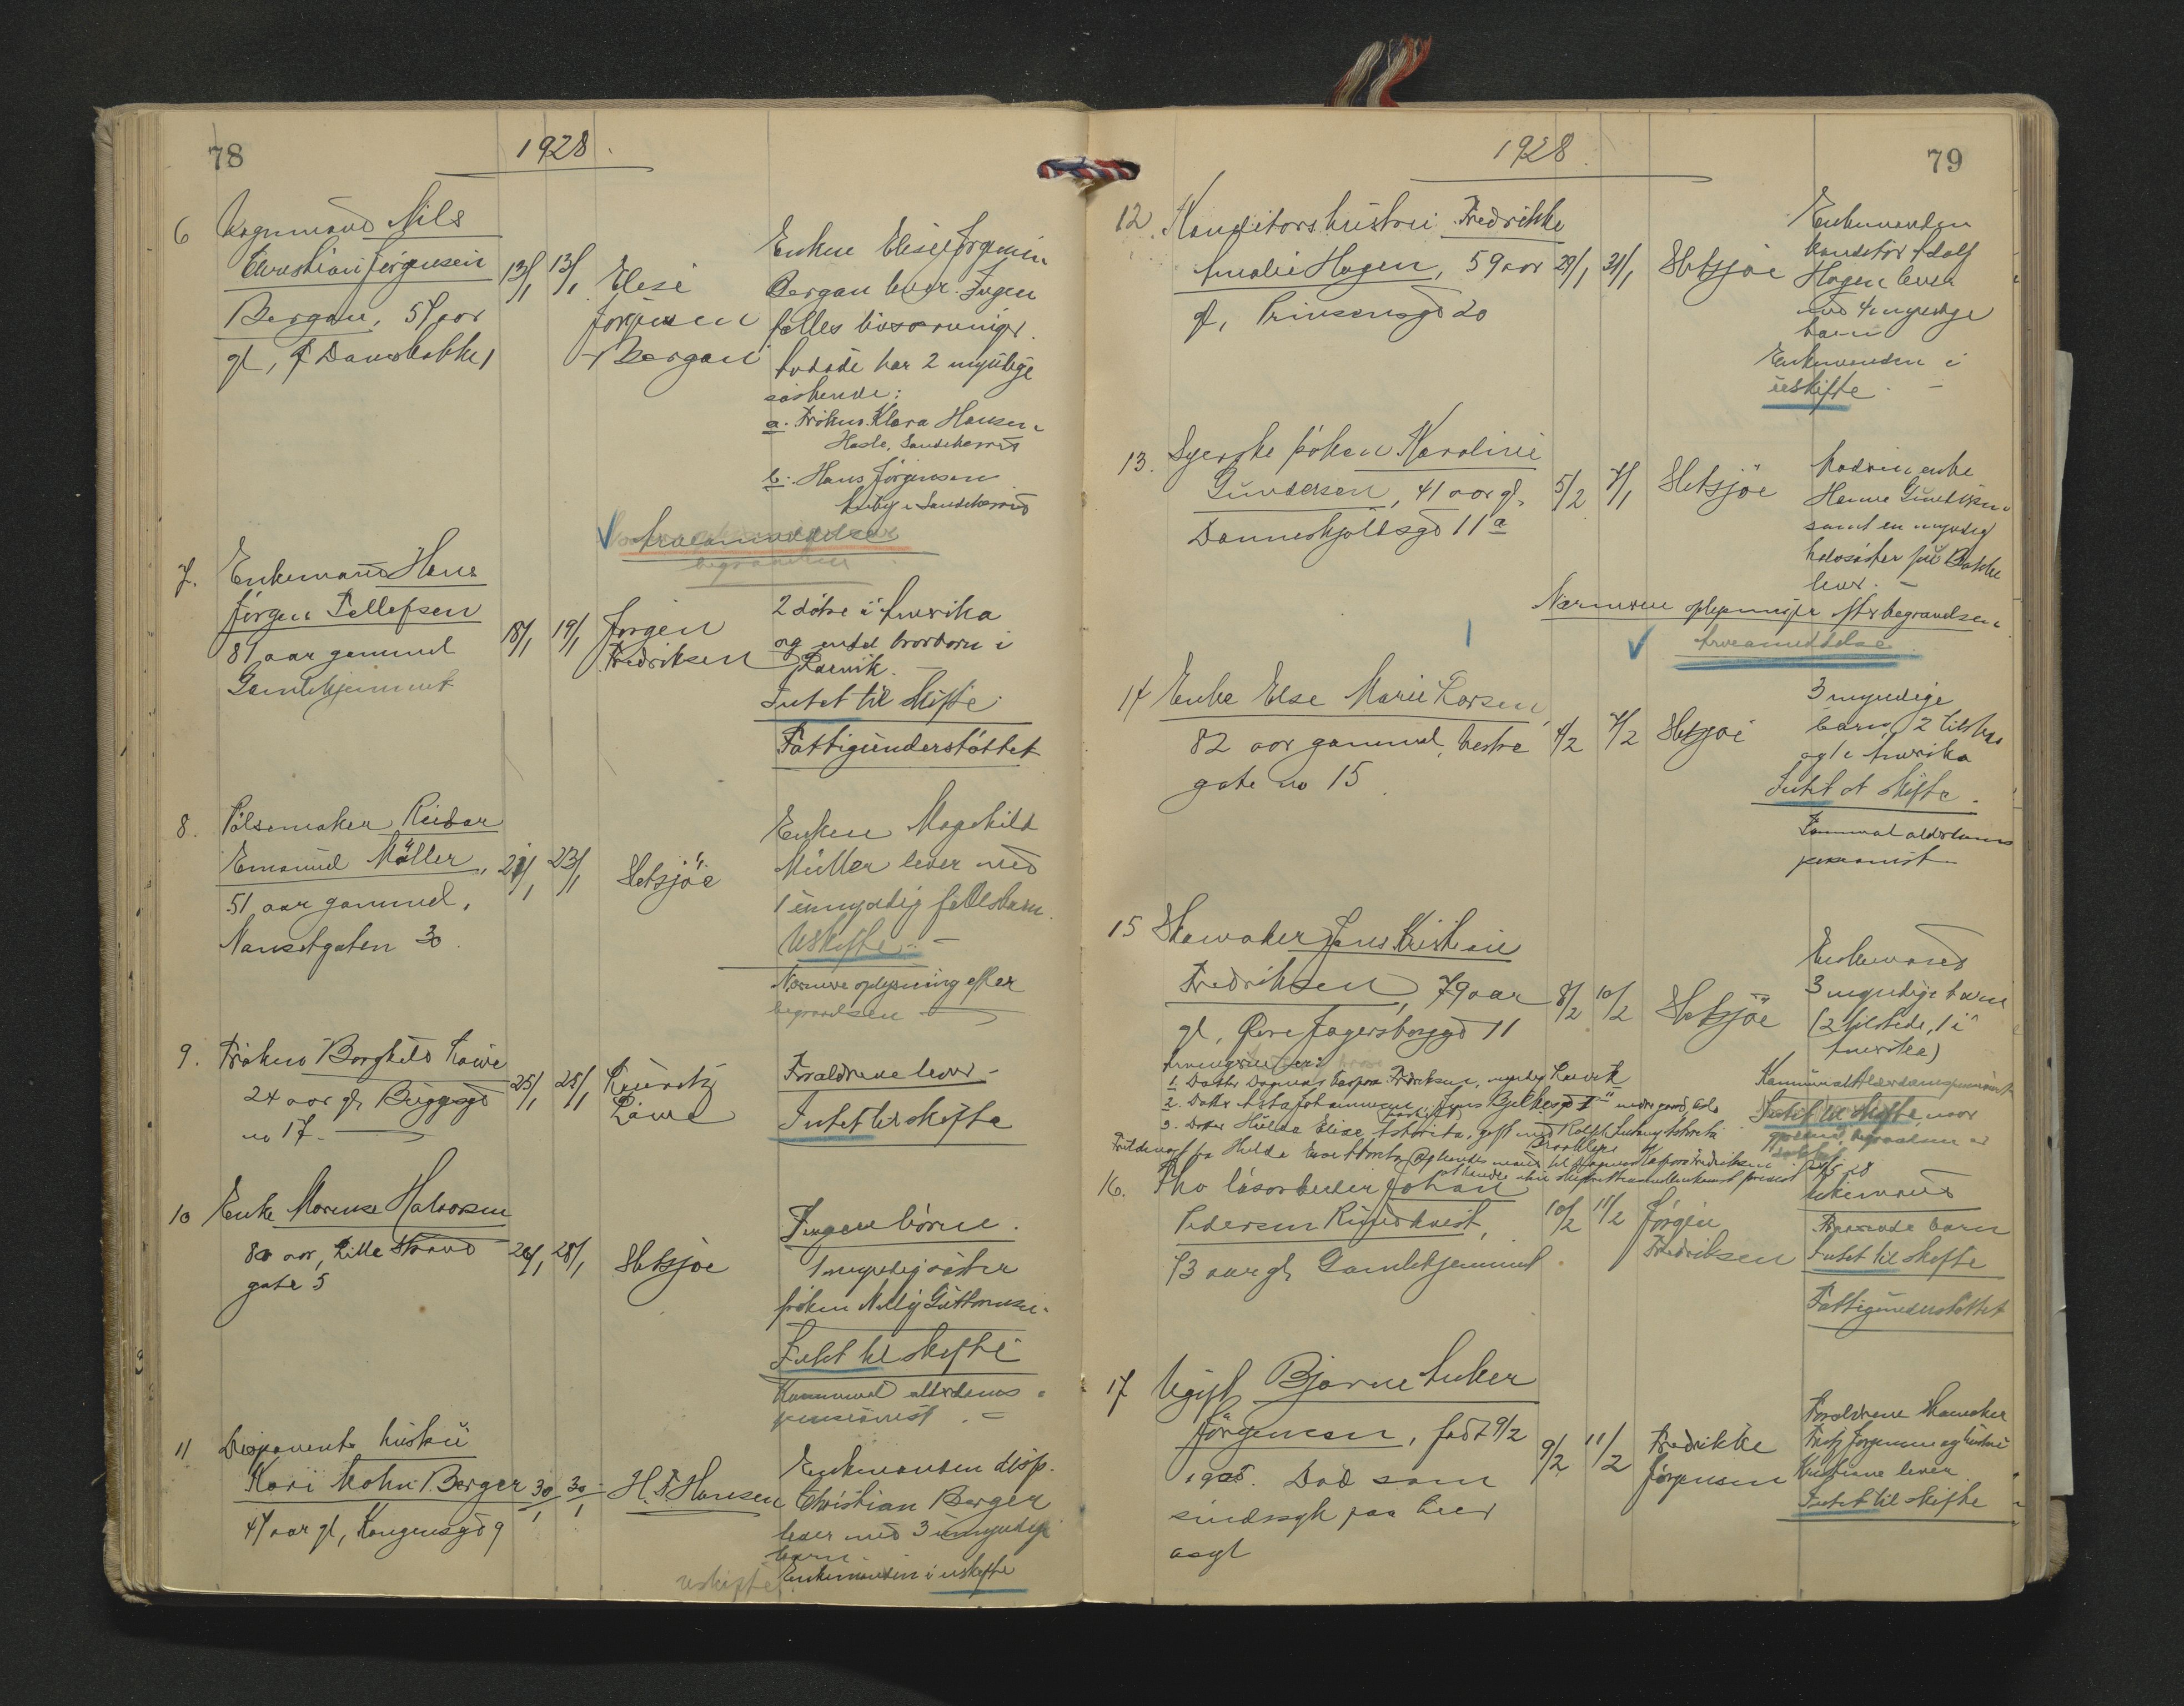 78
1928.
6 Vognmand Nils
Christian Jörgensen
Bergan, 57 aar
gl,
13/1 13/1
Elise
Jörgensen
Bergan
Enken Elise Jörgensen
Bergan lever. Ingen
fælles livsarvinger.
Avdöde har 2 myndige
söskende:
a. Fröken Klara Hansen,
Hasle, Sandeherred
b. Hans Jörgensen
Sandeherred
Arveanmeldelse
begravelsen
7. Enkemand Hans
Jörgen Tellefsen
81 aar gammel
Gamlehjemmet
18/1 19/1
Jörgen
Fredriksen
2 dötre i Amerika
og endel brorbarn i
Larvik.
Intet til skifte.
Fattigunderstöttet
8. Pölsemaker Reidar
Emanuel Möller,
51 aar gammel,
Nansetgaten 30.
21/1 23/1
Hetsjöe
Enken Magnhild
Müller lever med
1 umyndig fællesbarn.
Uskifte. –
Nærmere oplysning efter
begravelsen
9. Fröken Borghild Löwe
24 aar gl, Byggegd
no 17.
25/1 28/1
Löwe
Forældrene lever –
Intet til skifte
10 Enke Marense Halvorsen
80 aar, Lille Strand
gate 5
26/1 28/1
Hetsjöe
Ingen börn.
1 myndig söster
fröken Nelly Guttormsen.
Intet til skifte
Kommunal alderdoms
pensionist. –
11 Disponents hustru
Kari Mohn Berger
47 aar gl, Kongensgd 9
30/1 30/1
H. F. Hansen
Enkemanden disp.
Christian Berger
lever med 3 umyndige
barn
Enkemanden i uskifte
uskifte
1928.
79
12. Konditors hustru Fredrikke
Amalie Hagen, 59 aar
gl, Prinsensgd 20
29/1 31/1
Hetsjöe
Enkemanden
konditor Adolf
Hagen lever
med 4 myndige
barn
Enkemanden i
uskifte. –
13. Syerske fröken Karoline
Gundersen, 41 aar gl,
Danneskjoldsgd 11 a
5/2 7/1
Hetsjöe
Modren, enke
Hanne Gundersen
samt en myndig
halvsöster
lever. –
Nærmere oplysninger efter begravelsen.
Arveanmeldelse
14 Enke Else Marie Larsen,
82 aar gammel, Vestre
gate no 15.
4/2 7/2
Hetsjöe
3 myndige
barn, 2 tilstede
og 1 i Amerika
Intet at skifte.
Kommunal alderdoms
pensionist
15 Skomaker Jens Kristian
Fredriksen, 79 aar
gl, Övre Jegersborggd 11
8/2 10/2
Hetsjöe
Enkemand
3 myndige barn
(2 tilstede, 1 i
Amerika)
Arvingene er:
1. Datter Dagmar Fredriksen, myndig Larvik
2. Datter Asta Johannessen, Jens Bjelkesgd
3. Datter Hulda Elise
Kommunal Alderdomspensionist
Intet til skifte, naar
begravelsen er
16. Fhv. lösarbeider Johan
Pedersen Rundkvist,
73 aar gl, Gamlehjemmet.
10/2 11/2
Jörgen
Fredriksen
Enkemand
barn
Intet til skifte
Fattigunderstöttet
17 Ugift Bjarne Anker
Jörgensen, född 9/2
1905. Död som
sindssyk paa Lier
asyl
9/2 11/2
Fredrikke
Jörgensen
Forældrene Skomaker
Fritz Jörgensen og hustru
Kristiane lever.
Intet til skifte